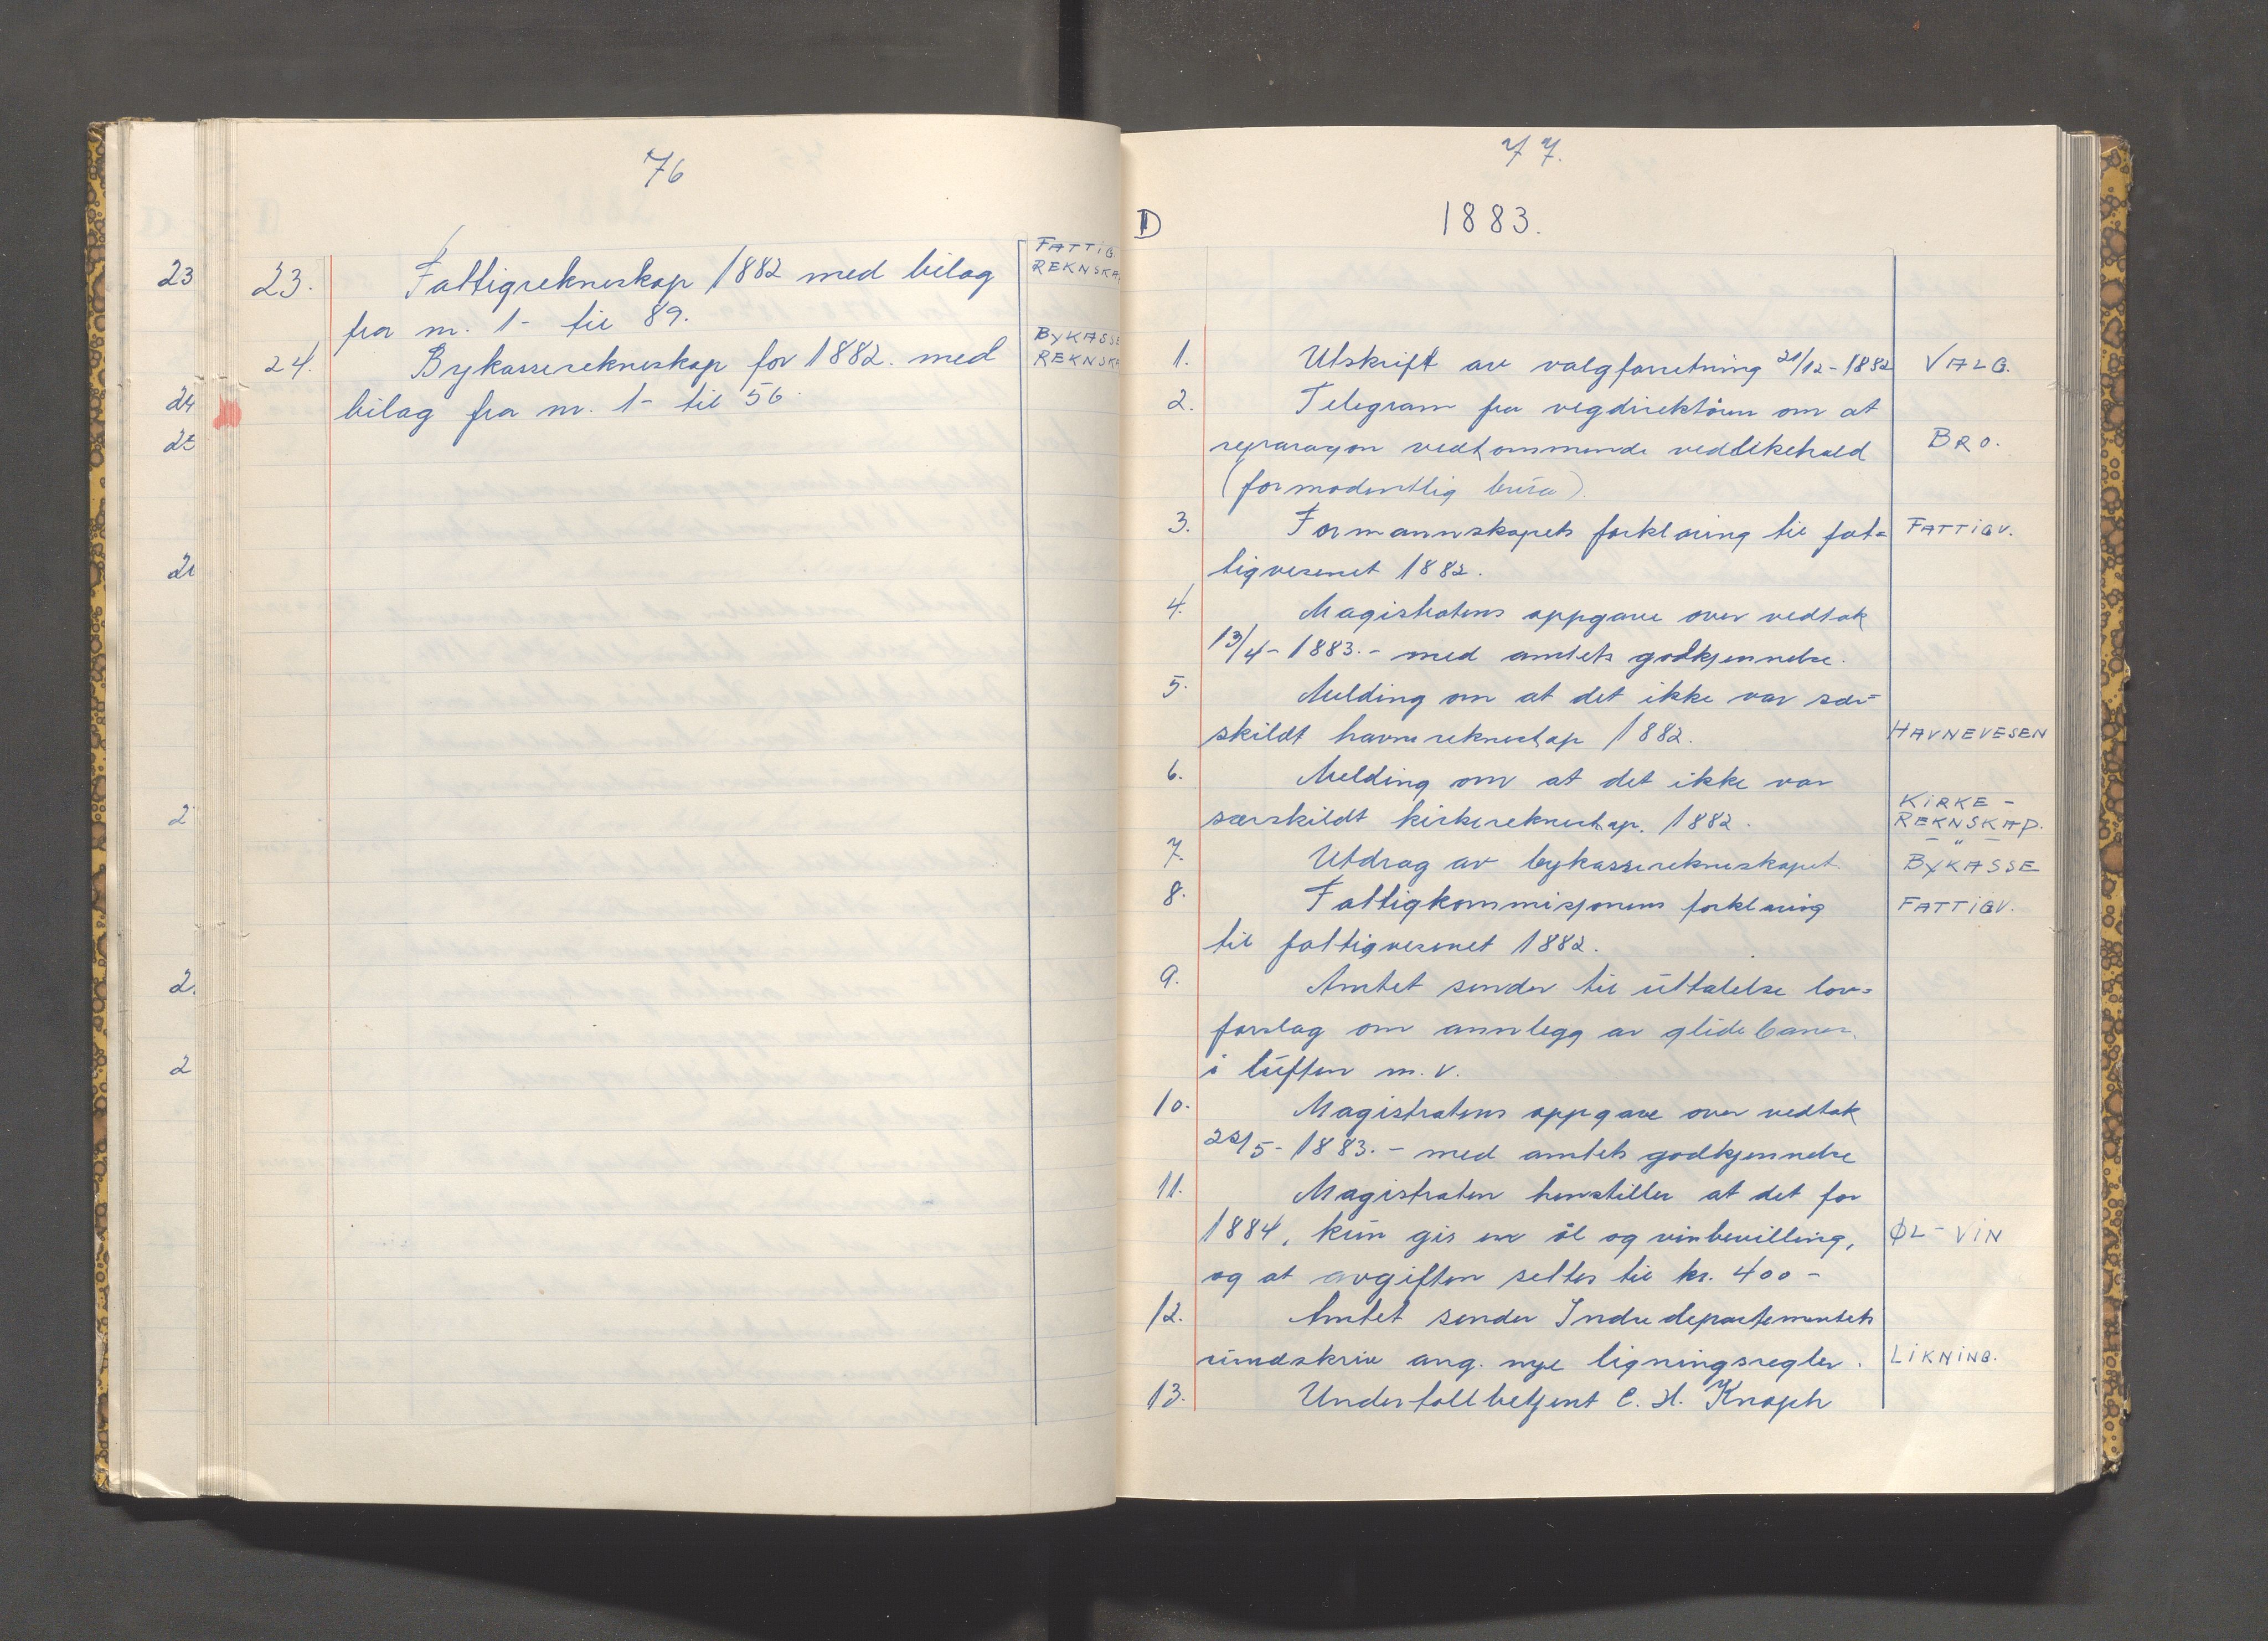 76
23
24
2
2
2
2
23. Fattigrekneskap 1882 med bilag FATTIG.
fra nr. 1- til 89. REKNSKA
24. Bykasserekneskap for 1882. med BYKASSE
bilag fra nr. 1- til 56. REKNSKA
77.
D
1883.
1. Utskrift av valgforretning 21/12-1882 VALG.
2. Telegram fra vegdirektören om at
reparasjon vedkommende vedlikehold BRO.
(formodentlig brua).
3. Formannskapets forklaring til fat= FATTIGV.
tigvesenet 1882.
4. Magistratens oppgave over vedtak
13/4-1883.- med amtets godkjennelse.
5. Melding om at det ikke var sær=
skildt havnerekneskap 1882. HAVNEVESEN
6. Melding om at det ikke var
særskildt kirkerekneskap. 1882. KIRKE-
REKNSKAP.
- " -
7. Utdrag av bykasserekneskapet BYKASSE
8. Fattigkommisjonens forklaring FATTIGV.
til fattigvesenet 1882.
9. Amtet sender til uttalelse lov=
forslag om annlegg av glidebaner
i luften m.v.
10. Magistratens oppgave over vedtak
22/5-1883.- med amtets godkjennelse
11. Magistraten henstiller at det for
1884, kun gis en öl og vinbevilling, ØL-VIN
og at avgiften settes til kr. 400-
12. Amtet sender Indredepartementets
rundskriv ang. nye ligningsregler. LIKNING.
13. Undertollbetjent C. H. Knoph